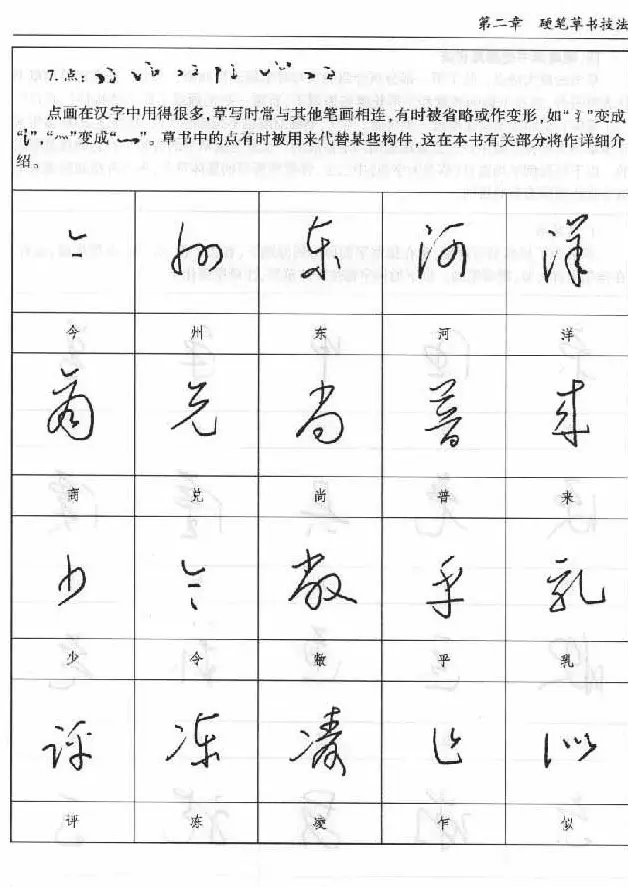 第二章 硬笔草书技法
7.点:
点画在汉字中用得很多,草写时常与其他笔画相连,有时被省略或作变形,如“氵”变成
“”,“灬”变成“”。草书中的点有时被用来代替某些构件,这在本书有关部分将作详细介
绍。
今 州 东 河 洋
今 州 东 河 洋
商 兑 尚 普 来
商 兑 尚 普 来
少 令 敞 乎 乳
少 令 敞 乎 乳
评 冻 凌 乍 似
评 冻 凌 乍 似